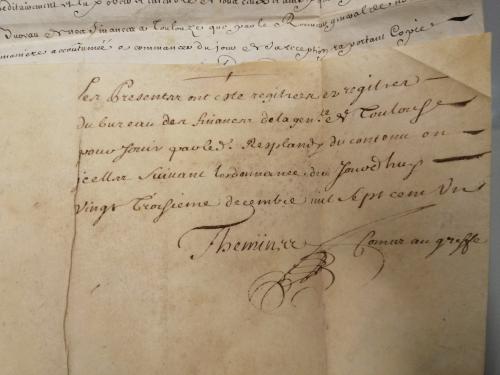 du bureau des finances a Toulouze que par le Receveur general de nos
maniere accoutumée a commancer du jour Et datte de reception raportant Copie
Les Presentes ont esté registrées ez registres
du bureau des finances de la gen.té de Toulouse
pour Jouir par led. Resplandy du contenu en
icelles Suivant Lordonnance du Jourdhuy
Vingt Troisieme decembre mil Sept cens Un
Themines Comis au greffe